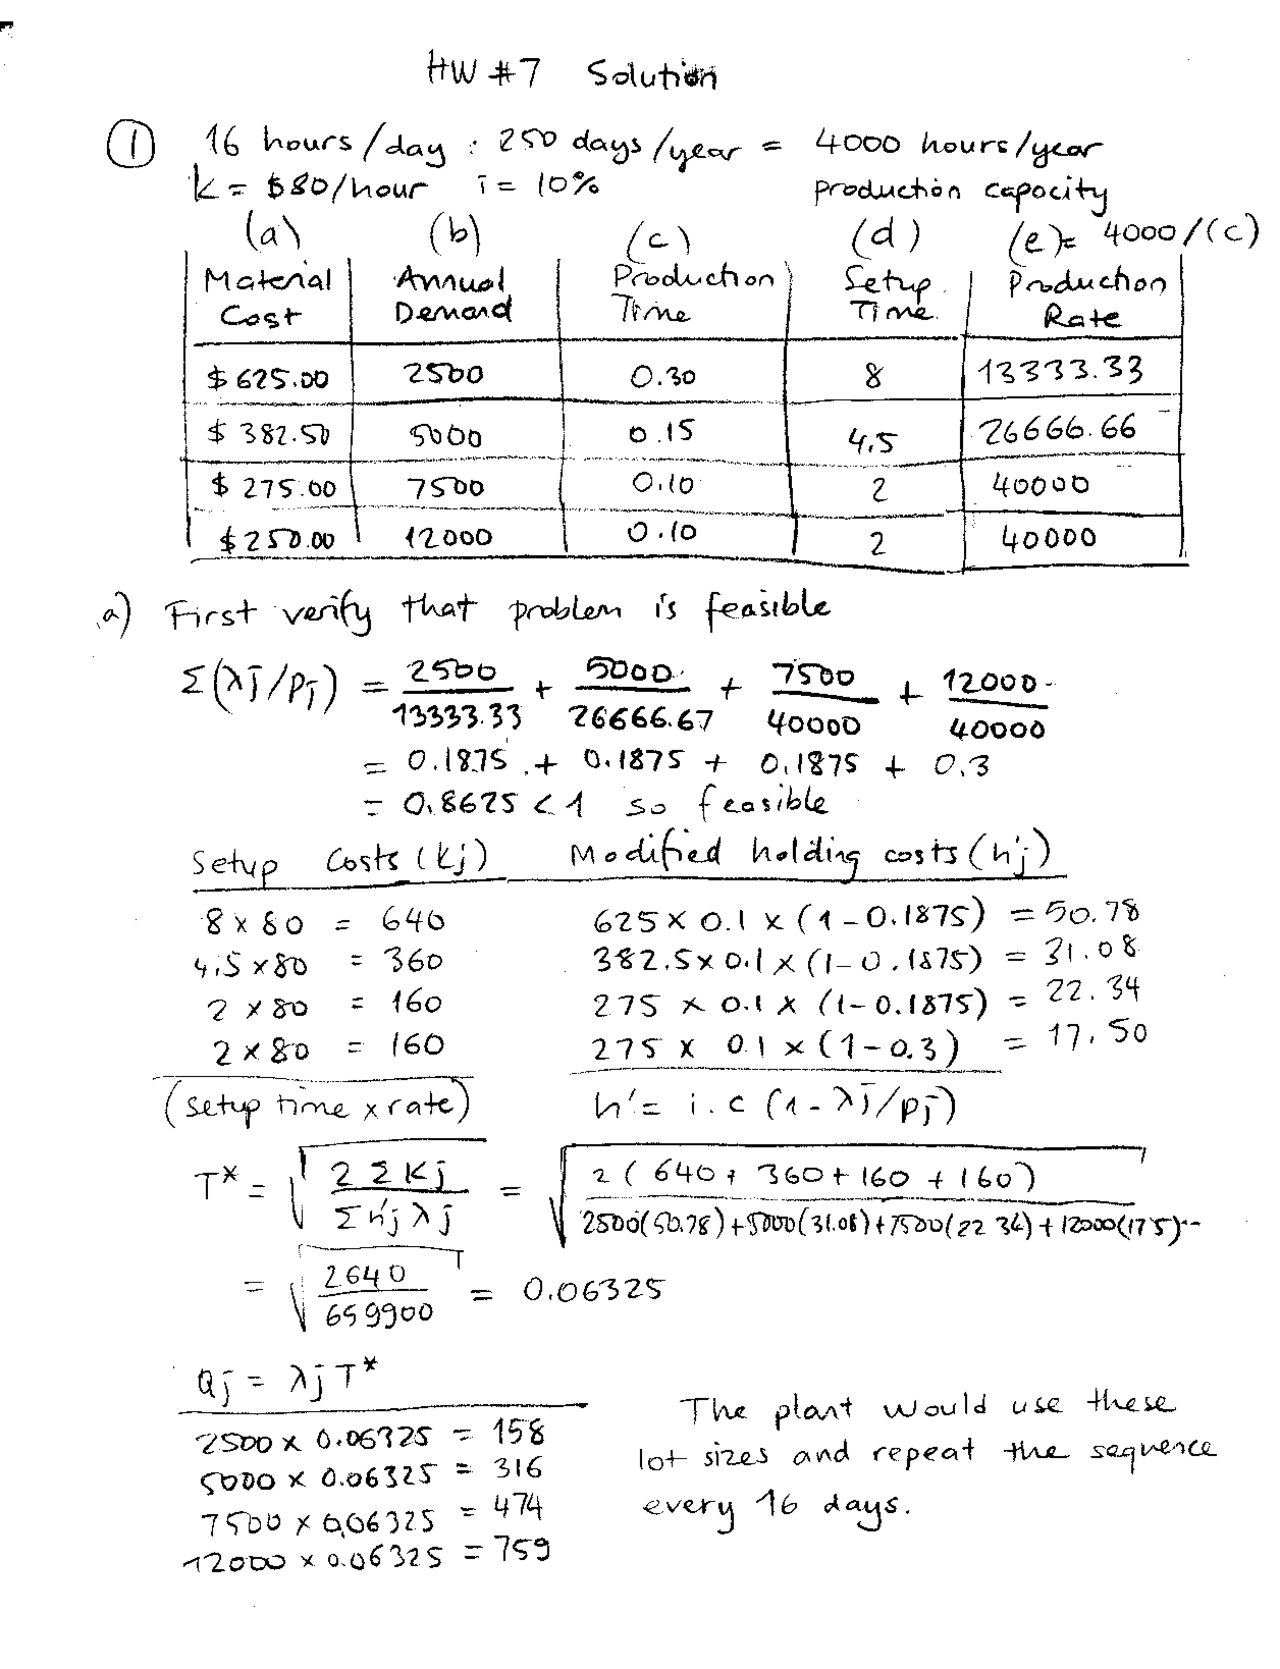 HW #7 Solution
① 16 hours/day : 250 days/year = 4000 hours/year
k = $80/hour i = 10% production capacity
(a) (b) (c) (d) (e)= 4000/(c)
Material Cost Annual Demand Production Time Setup Time Production Rate
$625.00 2500 0.30 8 13333.33
$382.50 5000 0.15 4.5 26666.66
$275.00 7500 0.10 2 40000
$250.00 12000 0.10 2 40000
a) First verify that problem is feasible
Σ(λj/pj) = 2500/13333.33 + 5000/26666.67 + 7500/40000 + 12000/40000
= 0.1875 + 0.1875 + 0.1875 + 0.3
= 0.8625 < 1 so feasible
Setup Costs (kj) Modified holding costs (h'j)
8 x 80 = 640 625 x 0.1 x (1-0.1875) = 50.78
4.5 x 80 = 360 382.5 x 0.1 x (1-0.1875) = 31.08
2 x 80 = 160 275 x 0.1 x (1-0.1875) = 22.34
2 x 80 = 160 275 x 0.1 x (1-0.3) = 17.50
(setup time x rate) h' = i.c (1-λj/pj)
T* = √(2 Σ Kj / Σ h'j λj) = √(2(640+360+160+160) / 2500(50.78)+5000(31.08)+7500(22 34)+12000(175))
= √(2640/659900) = 0.06325
Qj = λj T*
2500 x 0.06325 = 158
5000 x 0.06325 = 316
7500 x 0.06325 = 474
12000 x 0.06325 = 759
The plant would use these
lot sizes and repeat the sequence
every 16 days.